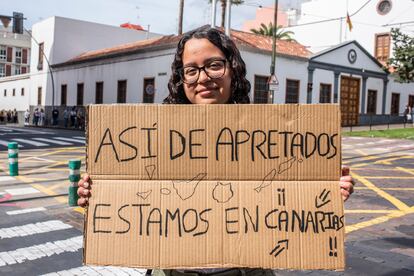 ASÍ DE APRETADOS
ESTAMOS EN ¡¡CANARIAS!!